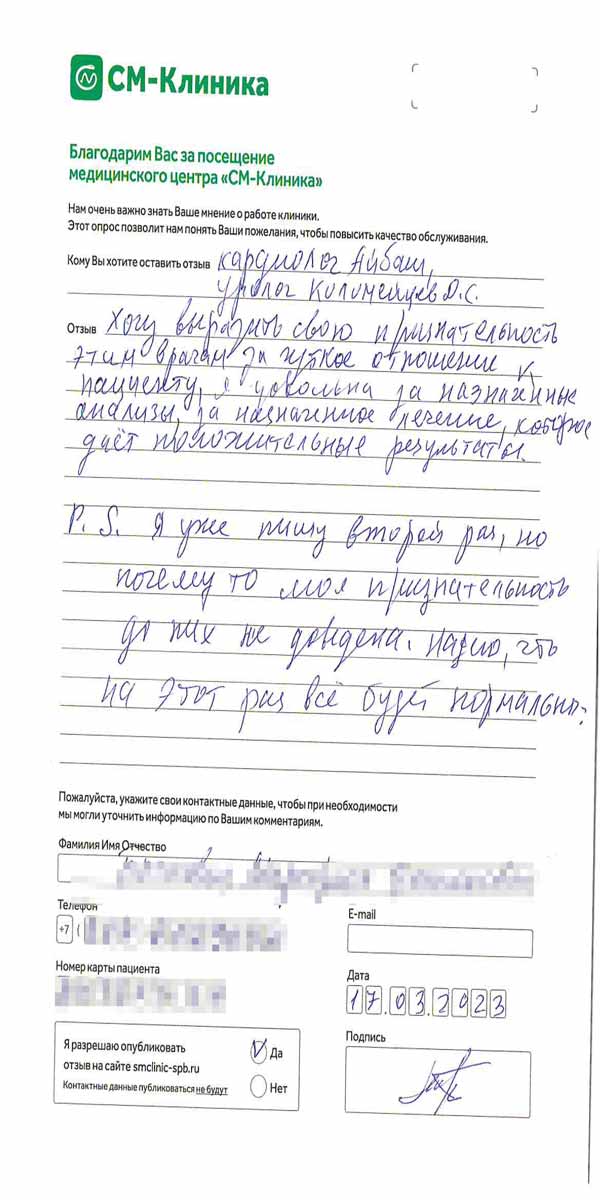 СМ-Клиника
Благодарим Вас за посещение
медицинского центра «СМ-Клиника»
Нам очень важно знать Ваше мнение о работе клиники.
Этот опрос позволит нам понять Ваши пожелания, чтобы повысить качество обслуживания.
Кому Вы хотите оставить отзыв кардиолог Айбаш,
уролог Коломейцев Д.С.
Отзыв Хочу выразить свою признательность
этим врачам за чуткое отношение к
пациенту, я довольна за назначенные
анализы, за назначенное лечение, которое
даёт положительные результаты.
P.S. Я уже пишу второй раз, но
почему то моя признательность
до них не доведена. Надеюсь, что
на этот раз всё будет нормально.
Пожалуйста, укажите свои контактные данные, чтобы при необходимости
мы могли уточнить информацию по Вашим комментариям.
Фамилия Имя Отчество
Телефон
E-mail
+7 (
Номер карты пациента
Дата
17.03.2023
Я разрешаю опубликовать
отзыв на сайте smclinic-spb.ru
Контактные данные публиковаться не будут
Да
Нет
Подпись